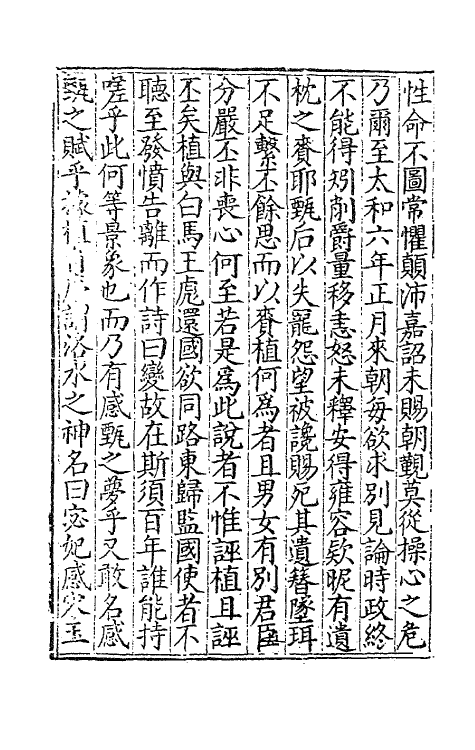 性命不圖常懼顛沛嘉詔未賜朝覲莫從操心之危
乃爾至太和六年正月來朝每欲求別見論時政終
不能得矧削爵量移恚怒未釋安得雍容欵昵有遺
枕之賚耶甄后以失寵怨望被讒賜死其遺簪墜珥
不足繫丕餘思而以賚植何為者且男女有別君臣
分嚴丕非喪心何至若是為此說者不惟誣植且誣
丕矣植與白馬王彪還國欲同路東歸監國使者不
聽至發憤告離而作詩曰變故在斯須百年誰能持
嗟乎此何等景象也而乃有感甄之夢乎又敢名感
甄之賦乎洛水之神名曰宓妃感宋玉